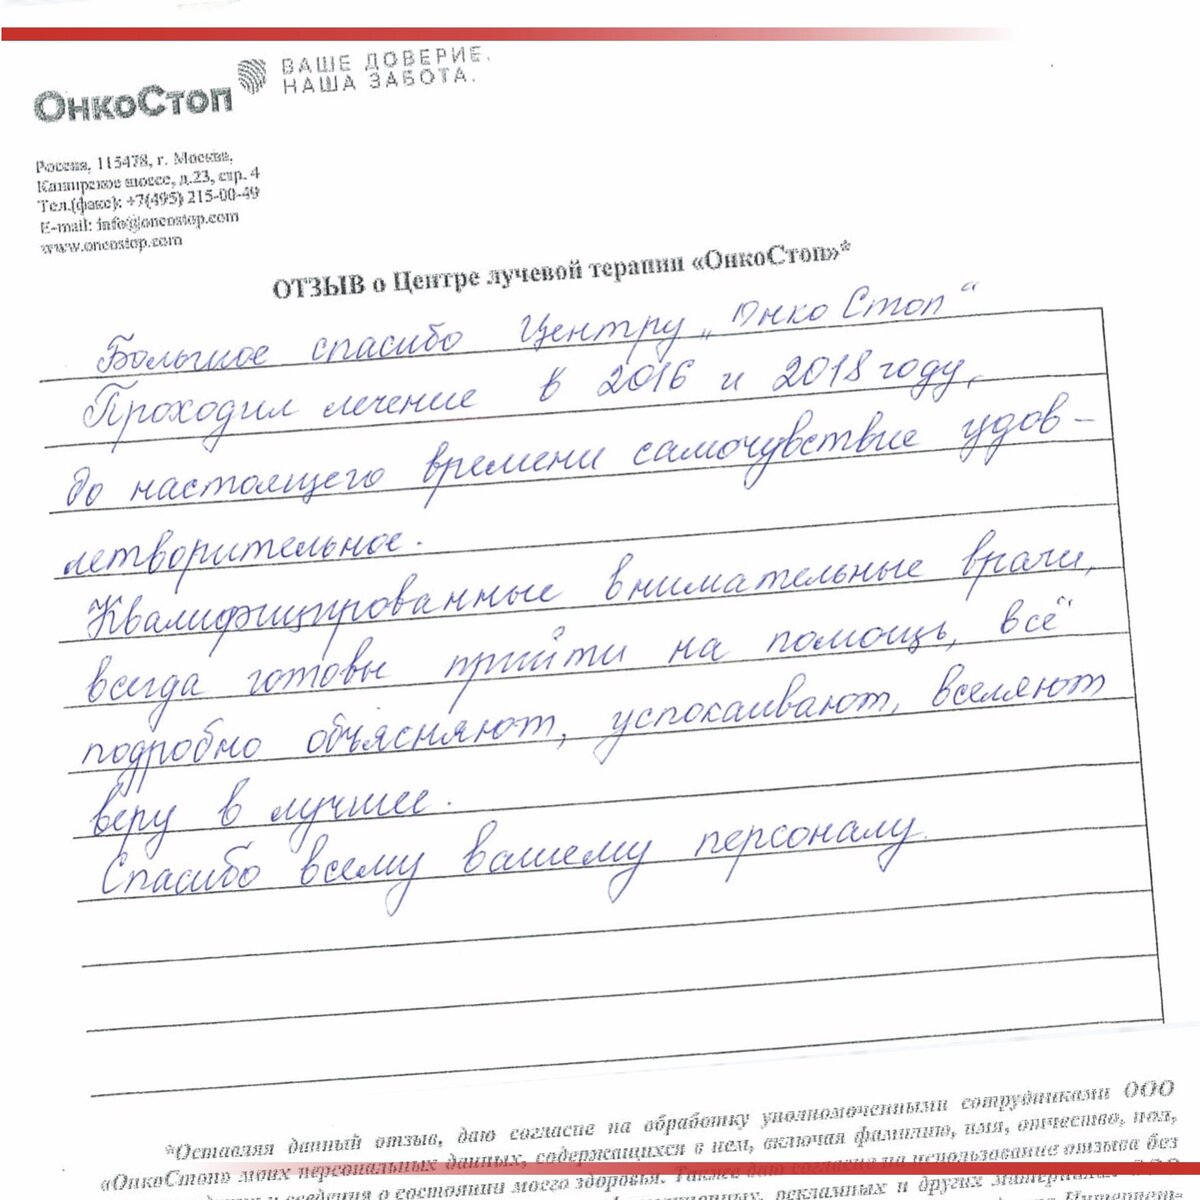 ОнкоСтоп
ВАШЕ ДОВЕРИЕ.
НАША ЗАБОТА.
Россия, 115478, г. Москва,
Каширское шоссе, д.23, стр. 4
Тел.(факс): +7(495) 215-00-49
E-mail: info@oncostop.com
www.oncostop.com
ОТЗЫВ о Центре лучевой терапии «ОнкоСтоп»*
Большое спасибо Центру „Онко Стоп“
Проходил лечение в 2016 и 2018 году,
до настоящего времени самочувствие удов-
летворительное.
Квалифицированные внимательные врачи,
всегда готовы прийти на помощь, всё
подробно объясняют, успокаивают, вселяют
веру в лучшее.
Спасибо всему вашему персоналу.
*Оставляя данный отзыв, даю согласие на обработку уполномоченными сотрудниками ООО
«ОнкоСтоп» моих персональных данных, содержащихся в нем, включая фамилию, имя, отчество, пол,
и сведения о состоянии моего здоровья. Также даю согласие на использование отзыва без
рекламных и других материалах ООО
Интернет-